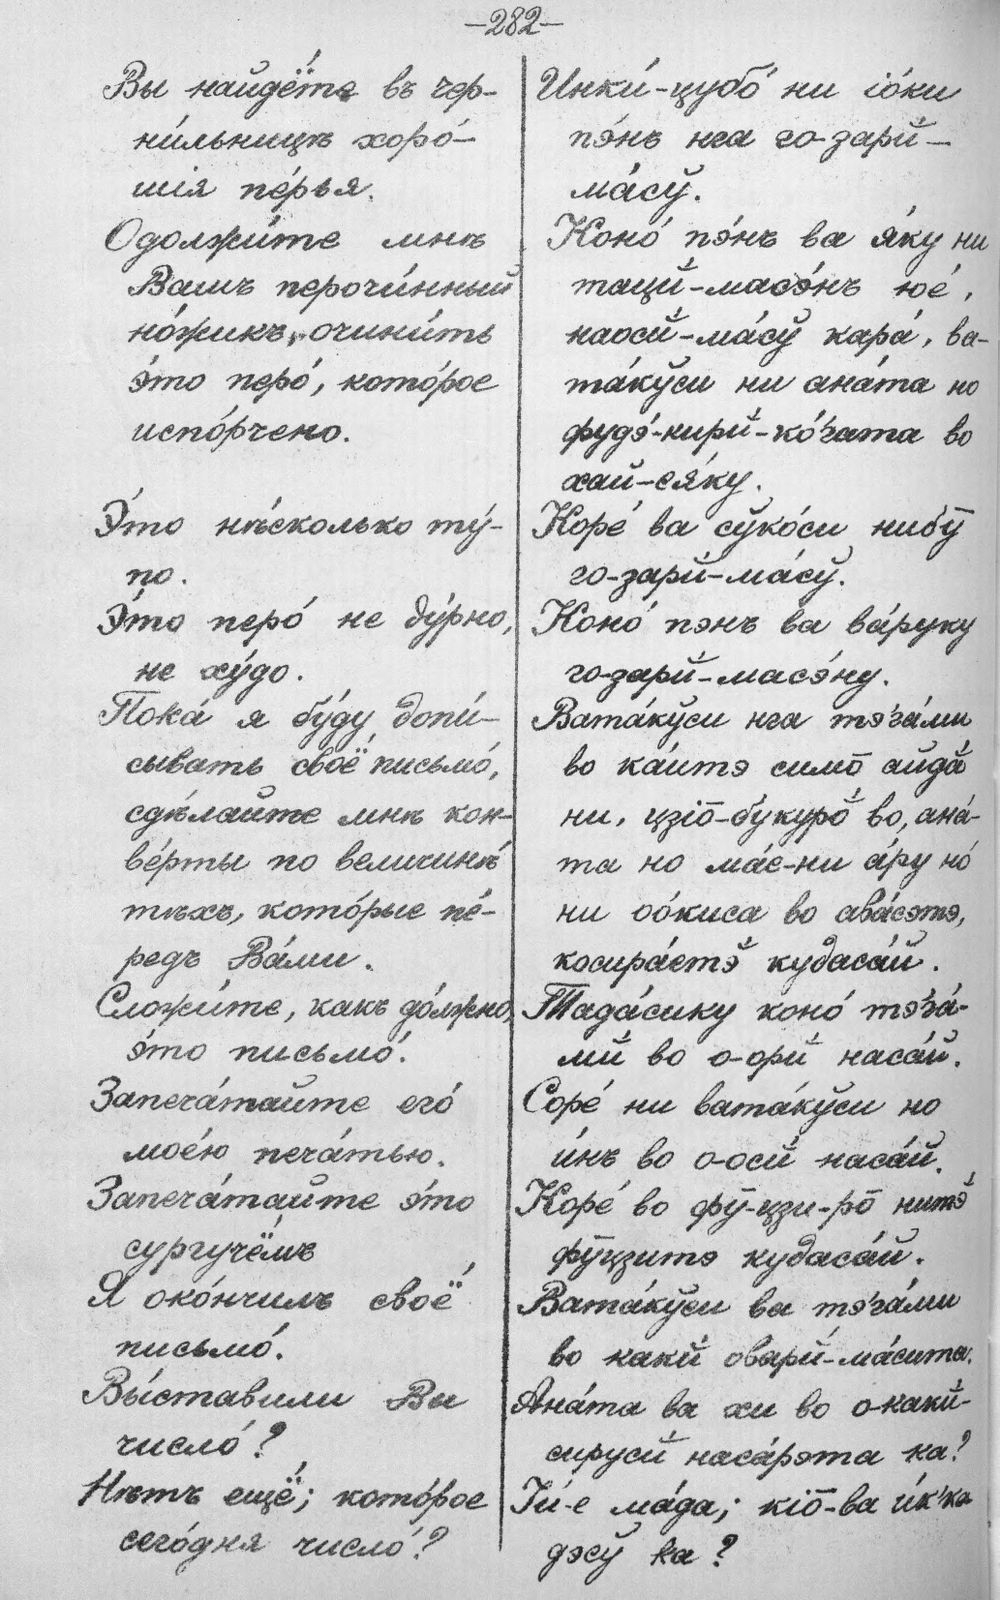 —282—
Вы найдёте въ чер-
ни́льницѣ хоро́-
шія пе́рья.
Одолжи́те мнѣ
Вашъ перочи́нный
но́жикъ, очини́ть
э́то перо́, кото́рое
испо́рчено.
Э́то нѣ́сколько ту́-
по.
Э́то перо́ не ду́рно,
не ху́до.
Пока́ я бу́ду допи́-
сывать своё письмо́,
сдѣ́лайте мнѣ кон-
ве́рты по величинѣ́
тѣхъ, кото́рые пе́-
редъ Ва́ми.
Сложи́те, какъ до́лжно,
э́то письмо́.
Запеча́тайте его́
мое́ю печа́тью.
Запеча́тайте э́то
сургучёмъ
Я око́нчилъ своё
письмо́.
Вы́ставили Вы
число́?
Нѣтъ ещё; кото́рое
сего́дня число́?
Инки́-цубо́ ни іо́ки
пэ́нъ нга го-зарй-
ма́сӯ.
Коно́ пэ́нъ ва я́ку ни
тацй-масэ́нъ юе́,
наосй-ма́сӯ кара́, ва-
та́кӯси ни ана́та но
фудэ́-кирй-ко́гата во
хай-ся́ку.
Коре́ ва сӯко́си нибӯ
го-зарй-ма́сӯ.
Коно́ пэнъ ва ва́руку
го-зарй-масэ́ну.
Вата́кӯси нга тэга́ми
во ка́итэ симо̄ айда̄
ни, цзіо̄-бу́куро̄ во, ана́-
та но ма́е-ни а́ру но́
ни оо́киса во ава́сэтэ,
косира́етэ̄ кудаса́й.
Тада́сику коно́ тэга́-
мй во о-орй наса́й.
Соре́ ни вата́кӯси но
и́нъ во о-осй наса́й.
Коре́ во фӯ-цзи-ро̄ нитэ̄
фӯцзитэ кудаса́й.
Вата́кӯси ва тэга́ми
во какй оварй-ма́сита.
Ана́та ва хи во о-какй-
сирусй наса́рэта ка?
Іи́-е ма́да; кіо̄-ва и́к'ка
дэсӯ ка?